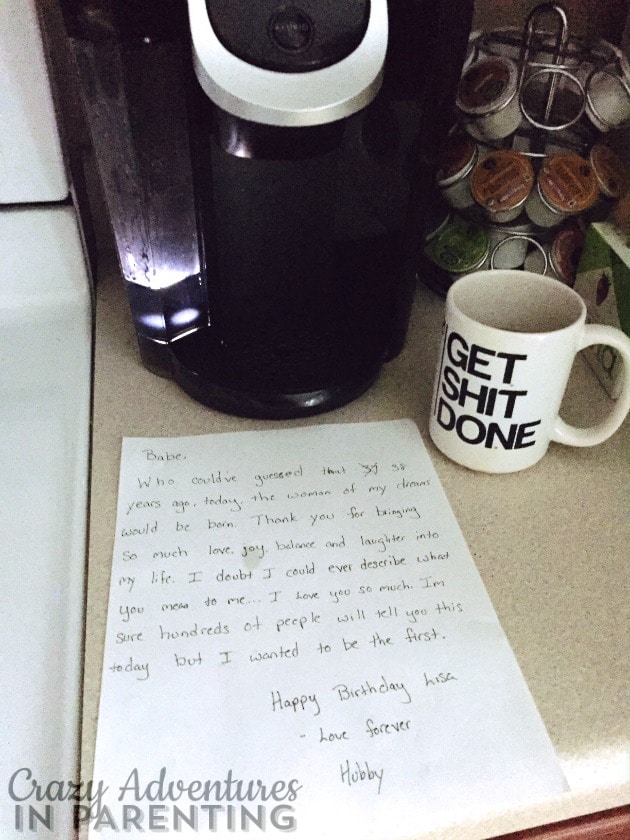 GET
SHIT
DONE
Babe,
Who could've guessed that 38
years ago, today, the woman of my dreams
would be born. Thank you for bringing
so much love, joy, balance and laughter into
my life. I doubt I could ever describe what
you mean to me... I love you so much. Im
sure hundreds of people will tell you this
today but I wanted to be the first.
Happy Birthday Lisa
- Love forever
Hubby
Crazy Adventures
IN PARENTING